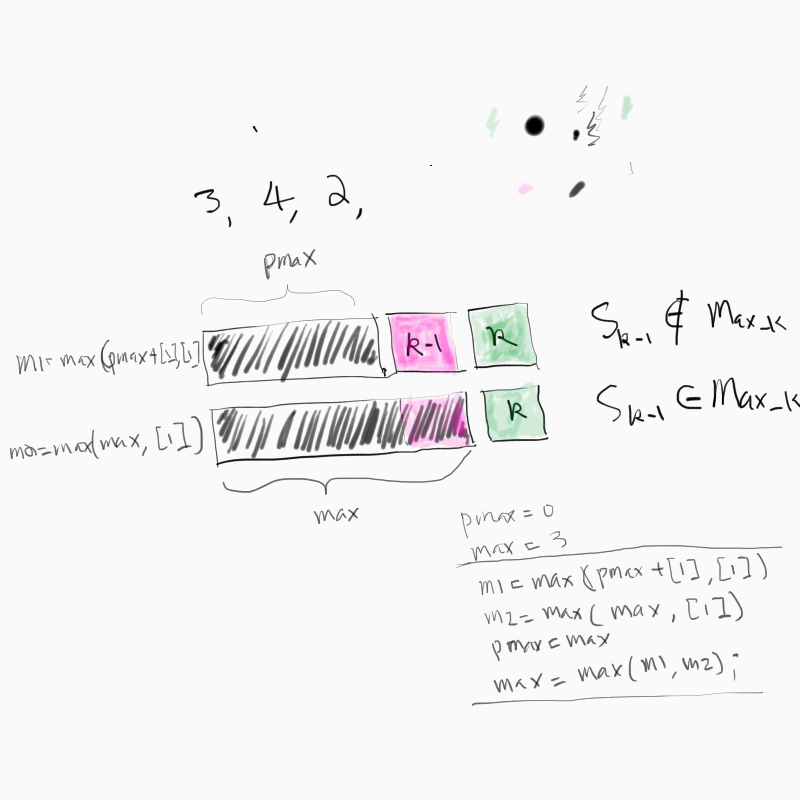 3, 4, 2,
pmax
m1=max(pmax+[i],[i]
k-1
k
S_k-1 ∉ Max_k
m2=max(max, [i])
k
S_k-1 ∈ Max_k
max
pmax = 0
max = 3
m1 = max(pmax+[i],[i])
m2 = max( max, [i])
pmax = max
max = max(m1,m2);